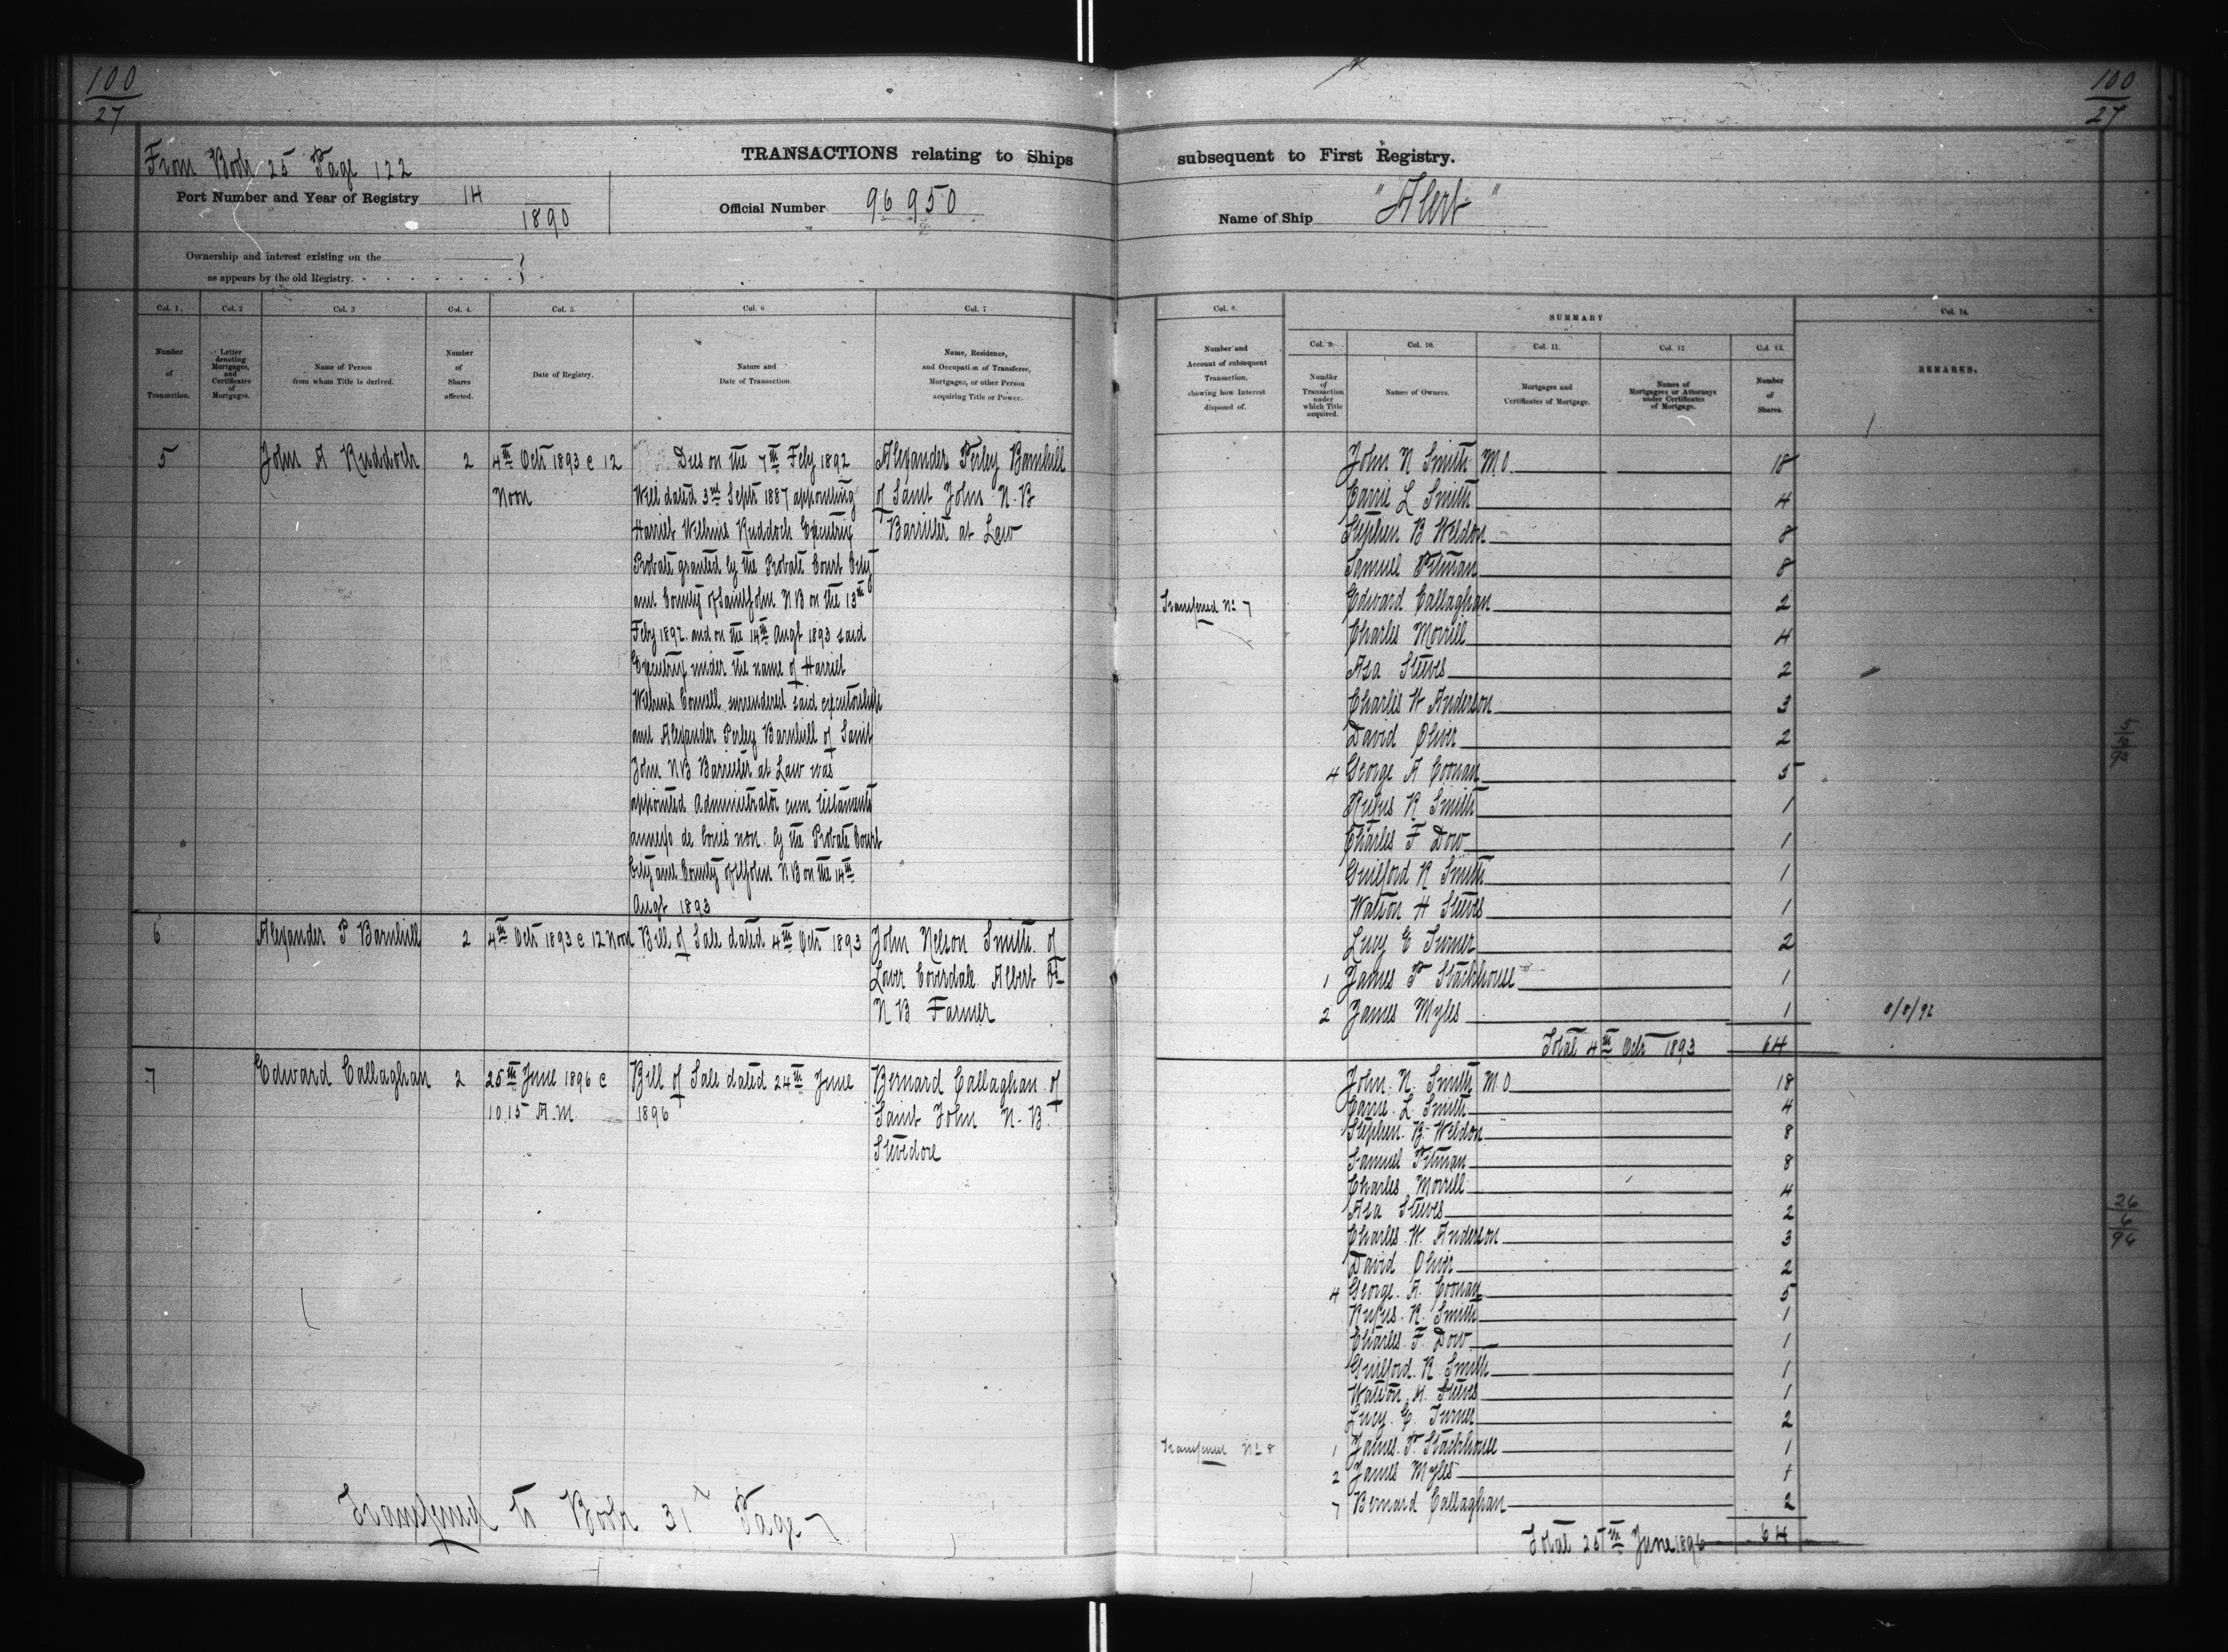 100
27
100
27
From Book 25 Page 122
TRANSACTIONS relating to Ships subsequent to First Registry.
Port Number and Year of Registry 14
1890
Official Number 96950
Name of Ship "Alert"
Ownership and interest existing on the
as appears by the old Registry.
Col. 1.
Col. 2
Col. 3
Col. 4.
Col. 5.
Col. 6
Col. 7
Number
of
Transaction.
Letter
denoting
Mortgages,
and
Certificates
of
Mortgages.
Name of Person
from whom Title is derived.
Number
of
Shares
affected.
Date of Registry.
Nature and
Date of Transaction.
Name, Residence,
and Occupation of Transferee,
Mortgagee, or other Person
acquiring Title or Power.
5
John A Ruddock
2
4th Octr 1893 @ 12
Noon
Died on the 7th Feby 1892
Will dated 3rd Septr 1887 appointing
Harriet Wilmine Ruddock Executrix
Probate granted by the Probate Court City
and County of Saint John N B on the 13th
Feby 1892 and on the 14th Augt 1893 said
Executrix under the name of Harriet
Connell surrendered said executorship
and Alexander Perley Barnhill of Saint
John N B Barrister at Law was
appointed Administrator cum testamento
annexo de bonis non by the Probate Court
City and County of St John N B on the 14th
Augt 1893
Alexander Perley Barnhill
of Saint John N. B
Barrister at Law
6
Alexander P Barnhill
2
4th Octr 1893 @ 12 Noon
Bill of Sale dated 4th Octr 1893
John Nelson Smith of
Lower Coverdale Albert Co
N B Farmer
7
Edward Callaghan
2
25th June 1896 @
10.15 A.M.
Bill of Sale dated 24th June
1896
Bernard Callaghan of
Saint John N. B
Stevedore
Transferred to Book 31 Page 7
Col. 8.
SUMMARY
Col. 14.
Number and
Account of subsequent
Transaction,
showing how Interest
disposed of.
Col. 9.
Col. 10.
Col. 11.
Col. 12
Col. 13.
Number
of
Transaction
under
which Title
acquired.
Names of Owners.
Mortgages and
Certificates of Mortgage.
Names of
Mortgagees or Attorneys
under Certificates
of Mortgage.
Number
of
Shares.
REMARKS.
John N Smith M O 18
Carrie L Smith 4
Stephen B Weldon 8
Samuel Pitman 8
Transferred No 7 Edward Callaghan 2
Charles Morrill 4
Asa Steeves 2
Charles W Anderson 3
David Oliver 2
4 George A Coonan 5
Rufus R Smith 1
Charles F Dow 1
Guilford R Smith 1
Watson H Steeves 1
Lucy E Turner 2
1 James P Stackhouse 1
2 James Myles 1
Total 4th Octr 1893 64
John. N. Smith M. O 18
Carrie. L. Smith 4
Stephen. B. Weldon 8
Samuel Pitman 8
Charles Morrill 4
Asa Steeves 2
Charles. W. Anderson 3
David Oliver 2
4 George. A. Coonan 5
Rufus. R. Smith 1
Charles. F. Dow 1
Guilford. R Smith 1
Watson. H. Steeves 1
Lucy. E. Turner 2
Transferred No 8 1 James. P. Stackhouse 1
2 James Myles 1
7 Bernard Callaghan 2
Total 25th June 1896 64
26
6
96